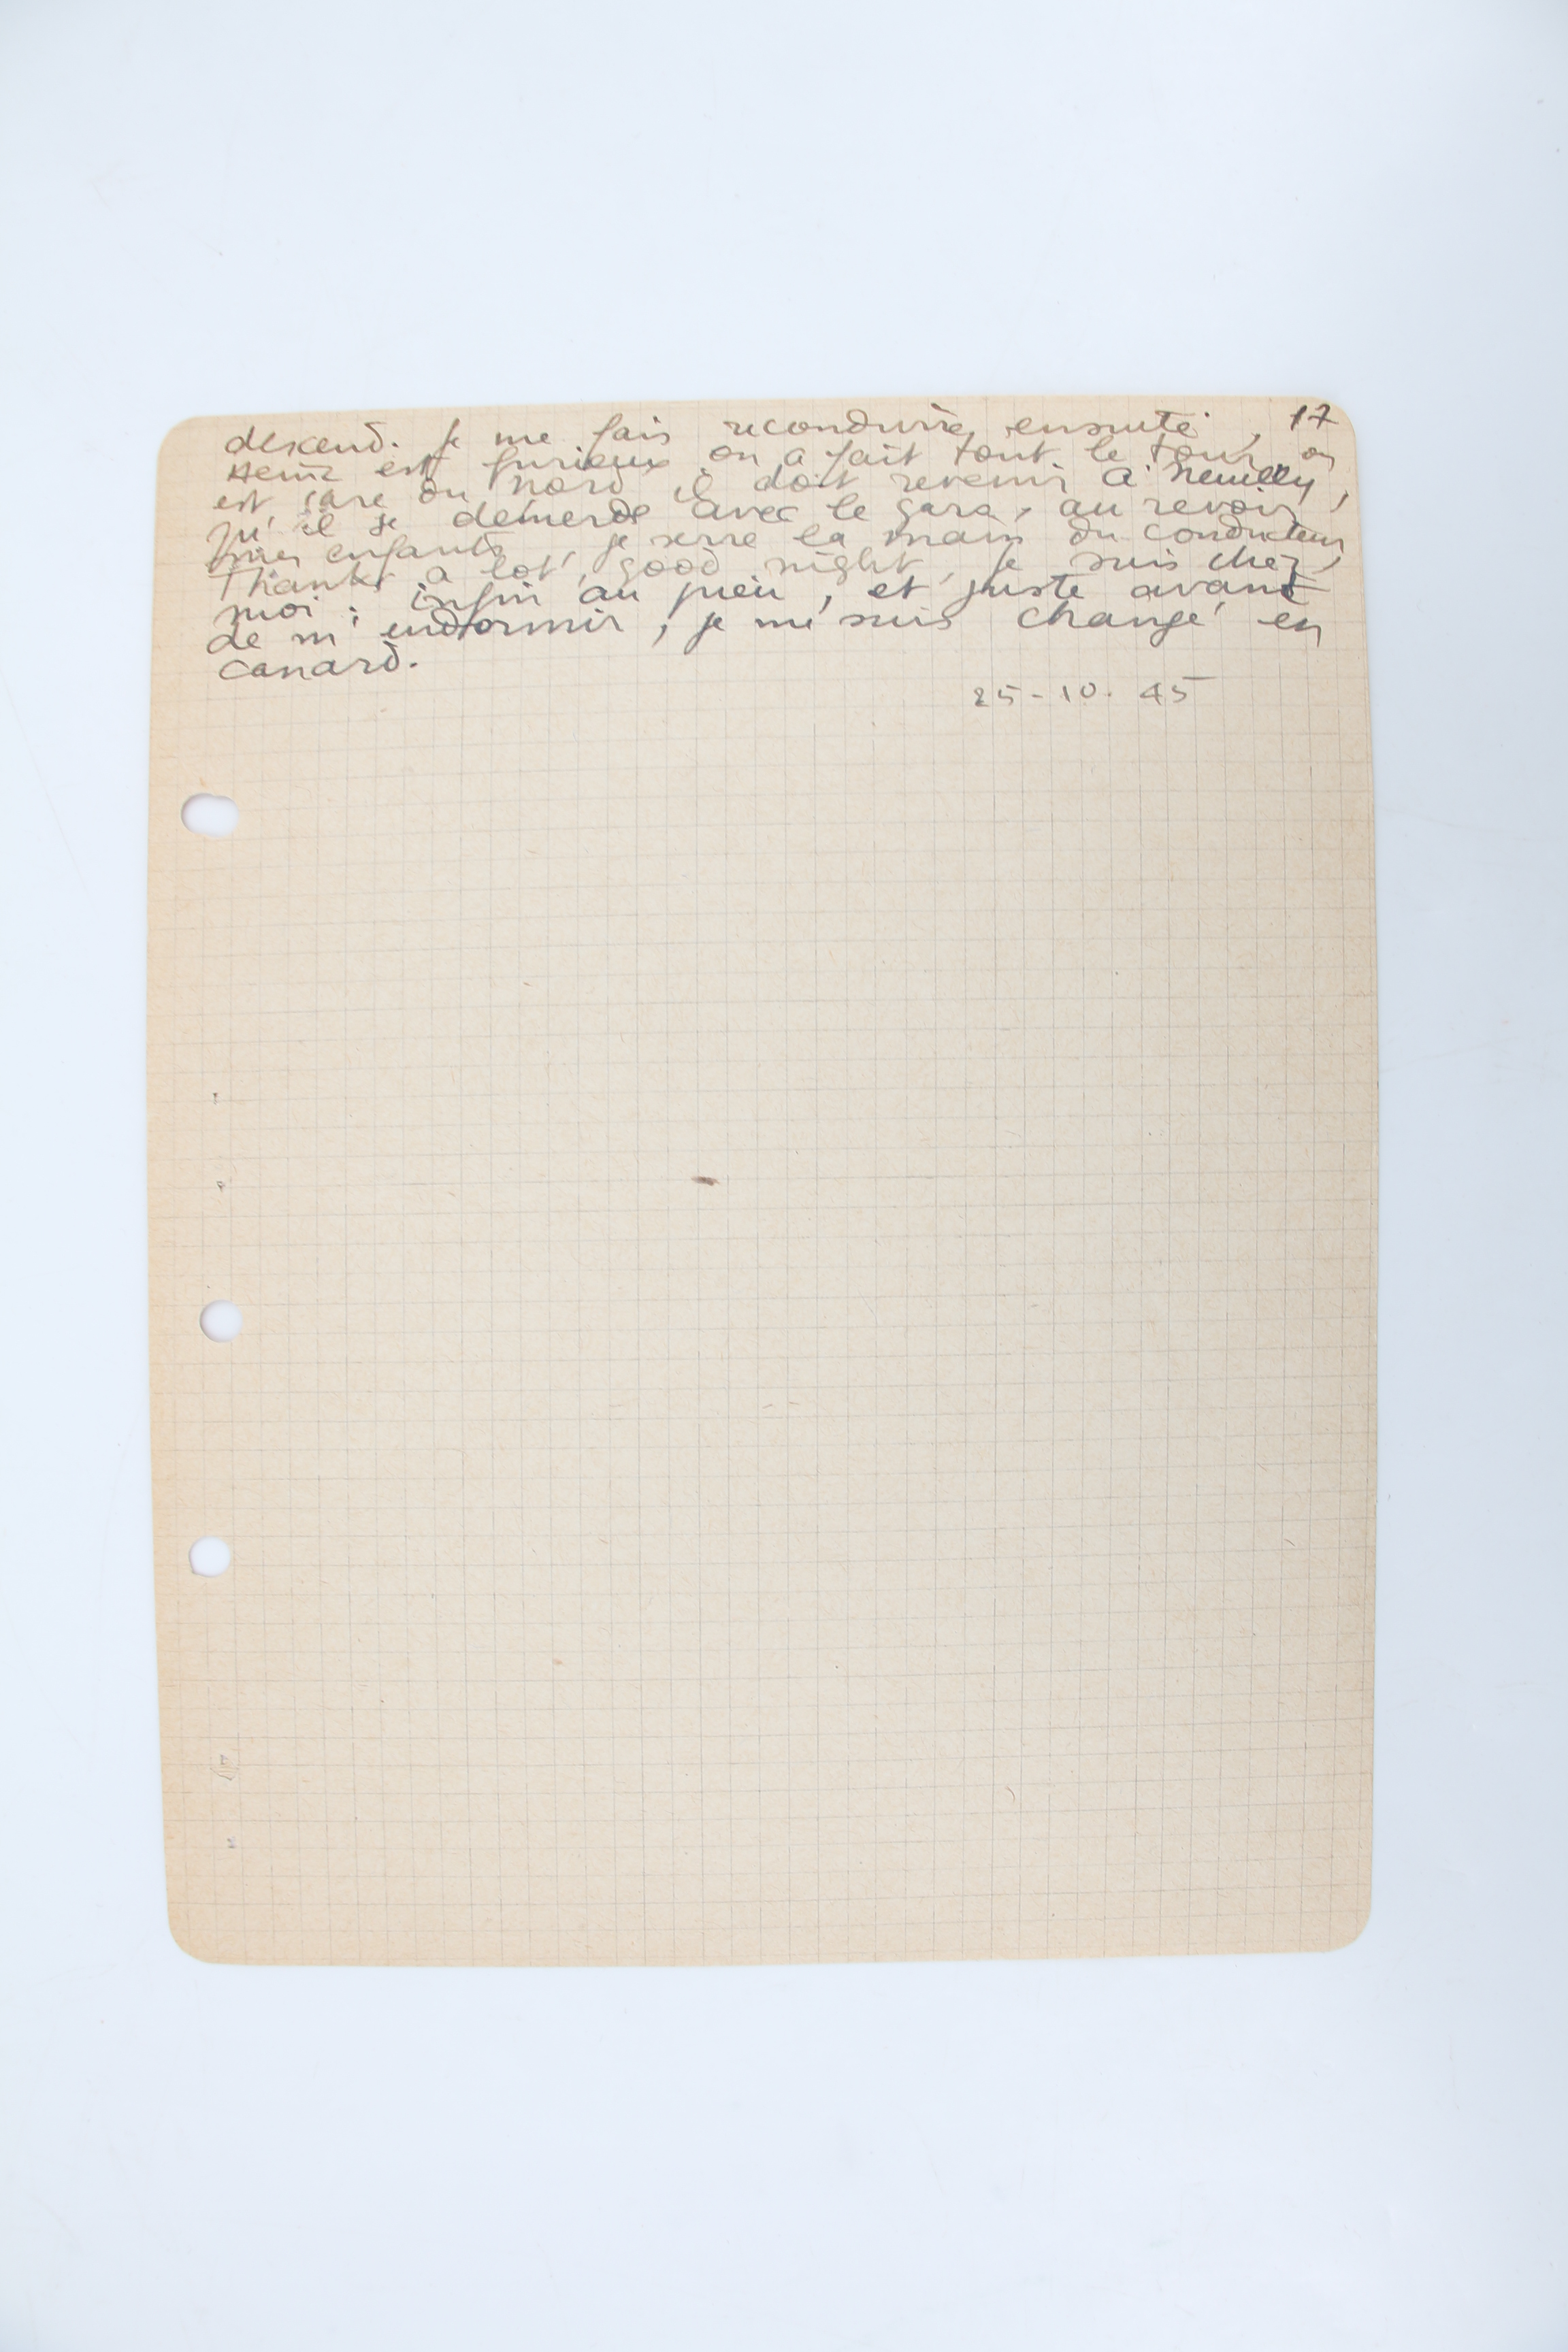 17
descend. Je me fais reconduire ensuite,
est furieux on a fait tout le tour, on
est gare du Nord il doit revenir à Neuilly,
qu'il se démerde avec le gars, au revoir
mes enfants, je serre la main du conducteur
Thanks a lot, good night, je suis chez
moi; enfin au pieu, et juste avant
de m'endormir, je me suis changé en
canard.
25-10-45